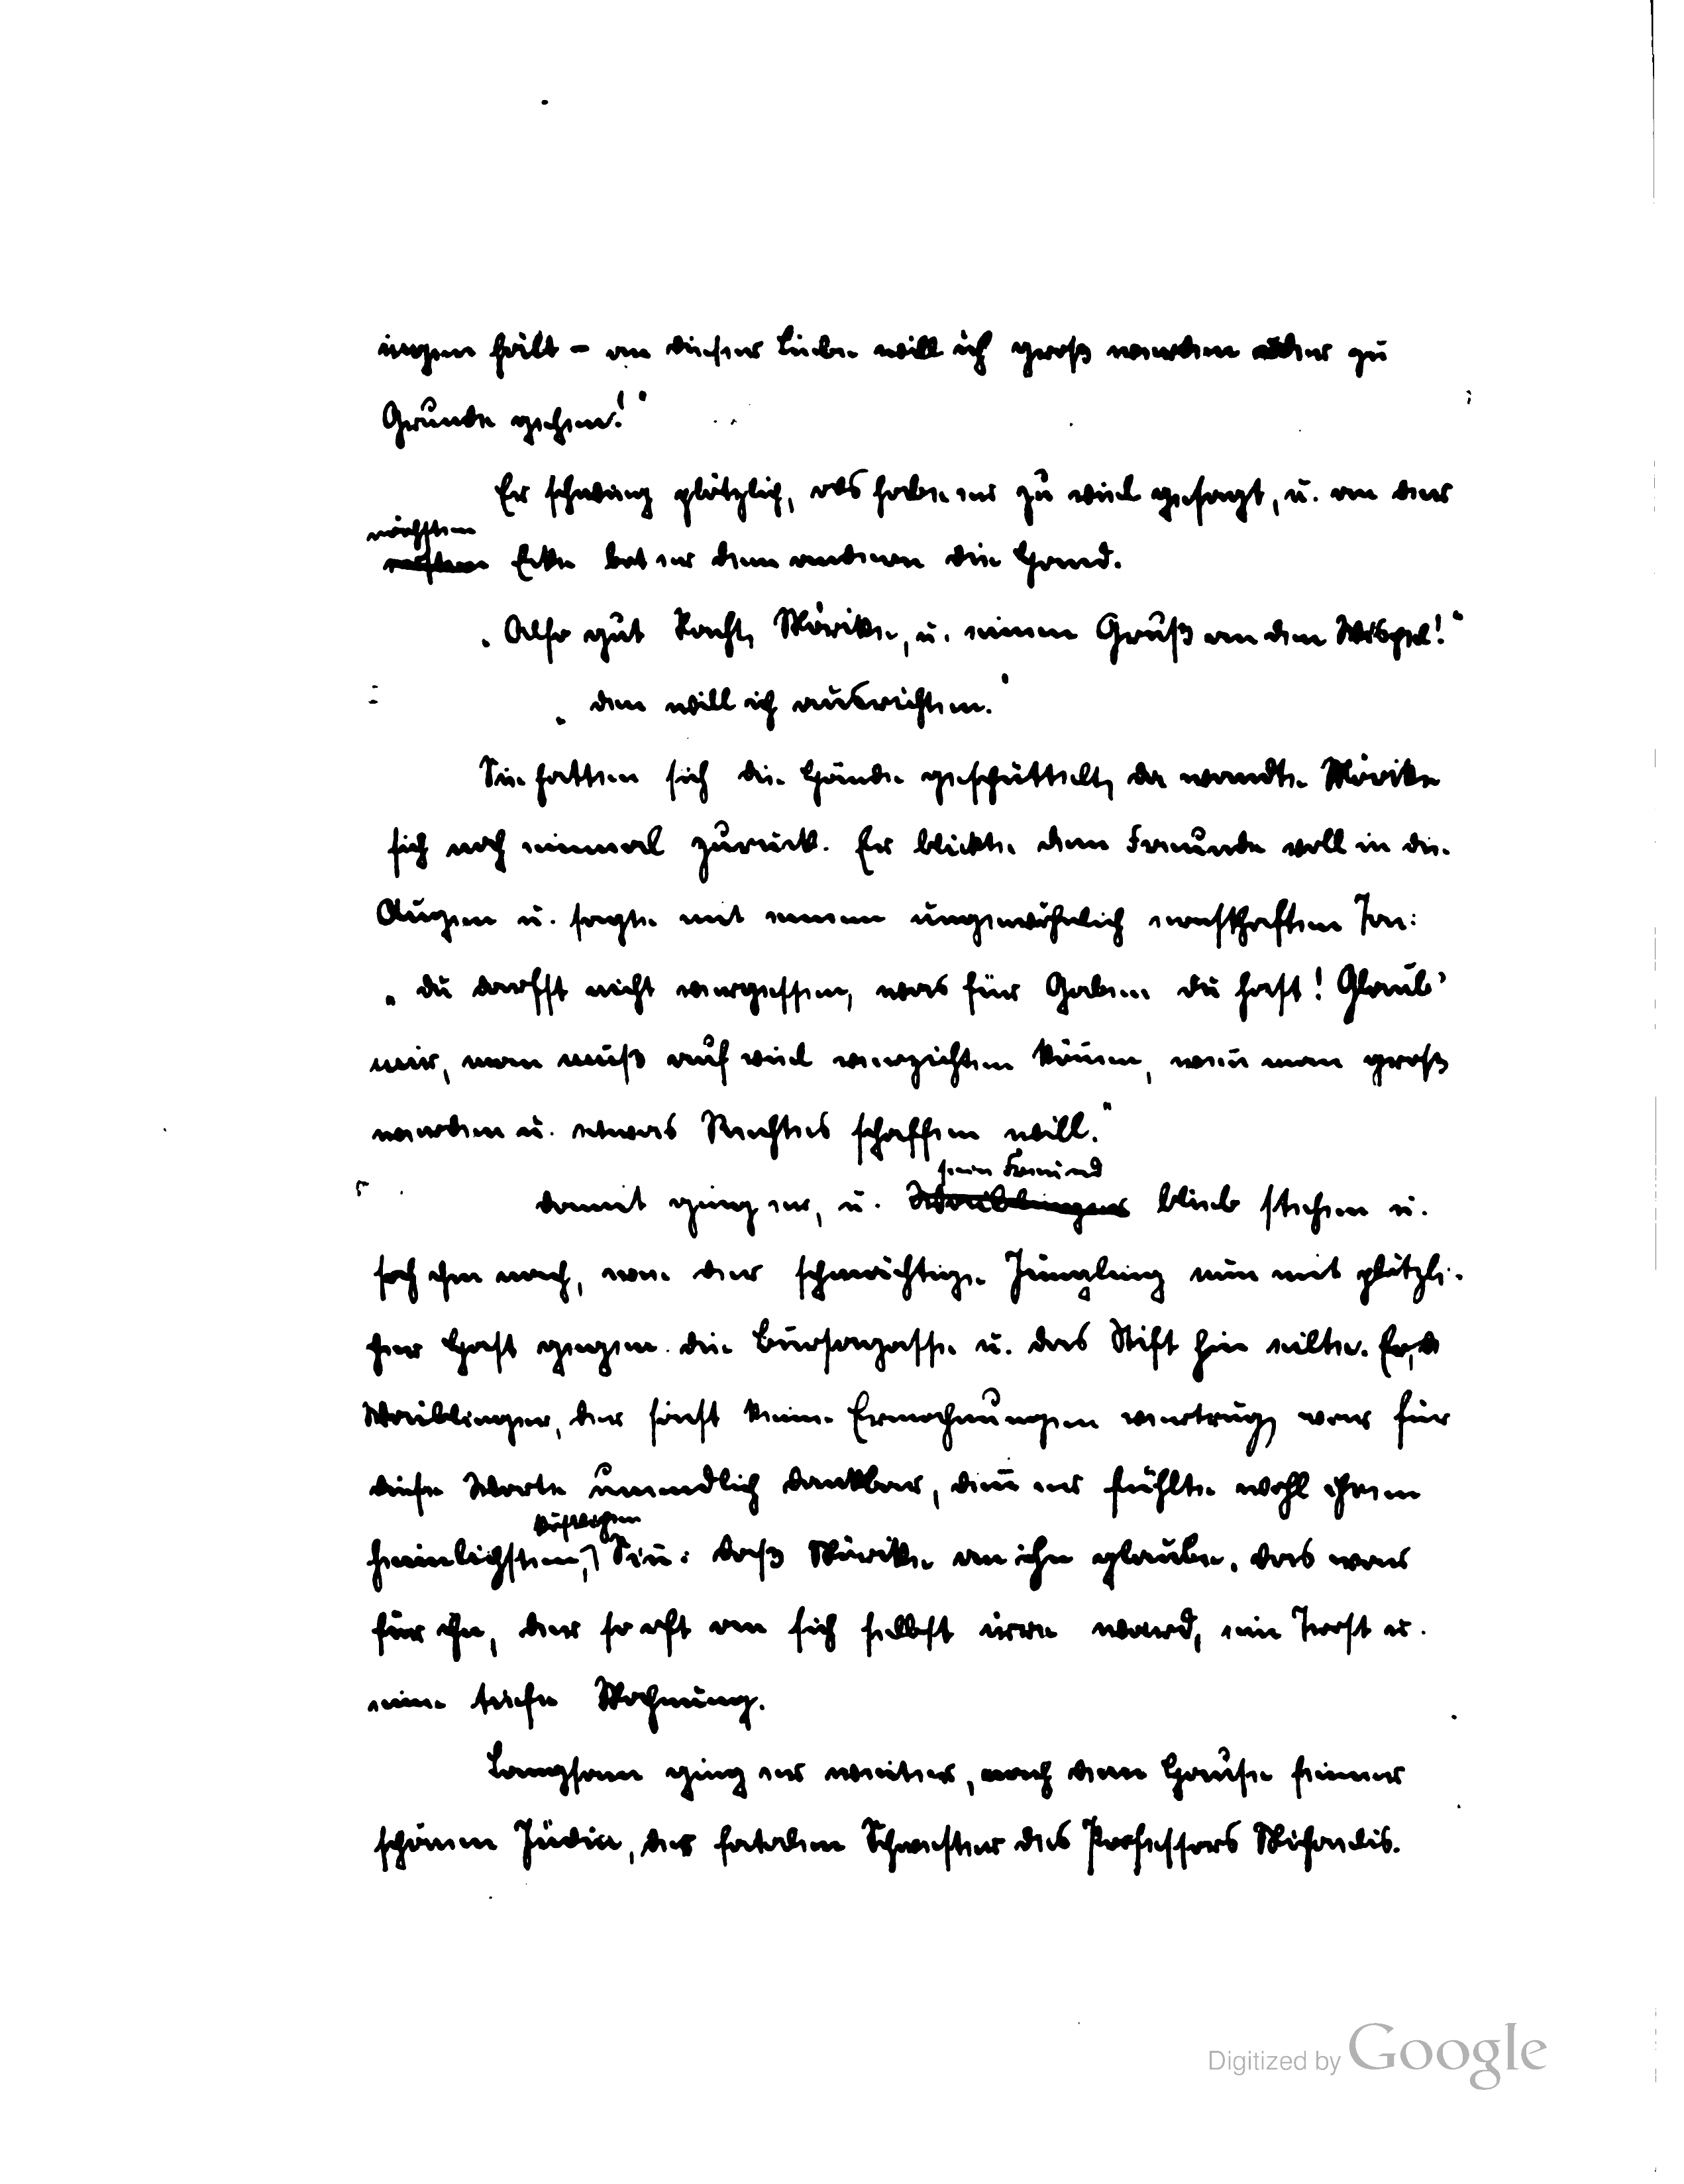 ingen hält – an dieser Liebe will ich groß werden oder zu
Grunde gehen!"
Er schwieg plötzlich, als habe er zu viel gesagt, u. an der
nächsten
Ecke bot er dem anderen die Hand.
„Also gut Nacht, Mörike, u. einen Gruß an den Wispel!"
„Den will ich ausrichten."
Sie hatten sich die Hände geschüttelt, da wandte Mörike
sich noch einmal zurück. Er blickte dem Freunde voll in die
Augen u. sagte mit einem ungewöhnlich ernsthaften Ton:
„Du darfst nicht vergessen, was für Gaben du hast! Glaub'
mir, man muß auf viel verzichten können, wenn man groß
werden u. etwas Rechtes schaffen will."
sein Freund
Damit ging er, u. Waiblinger blieb stehen u.
sah ihm nach, wie der schmächtige Jüngling nun mit plötzli-
cher Hast gegen die Bursagasse u. das Stift hin eilte. Er,
Waiblinger, der sonst keine Ermahnungen vertrug, war für
diese Worte unendlich dankbar, denn er fühlte wohl ihren
heimlichsten, Sinn: daß Mörike an ihn glaube. Das war
für ihn, der so oft an sich selbst irre ward, ein Trost u.
eine tiefe Mahnung.
Langsam ging er weiter, nach dem Hause seiner
schönen Jüdin, der fatalen Schwester des Professors Michaelis.
Digitized by Google